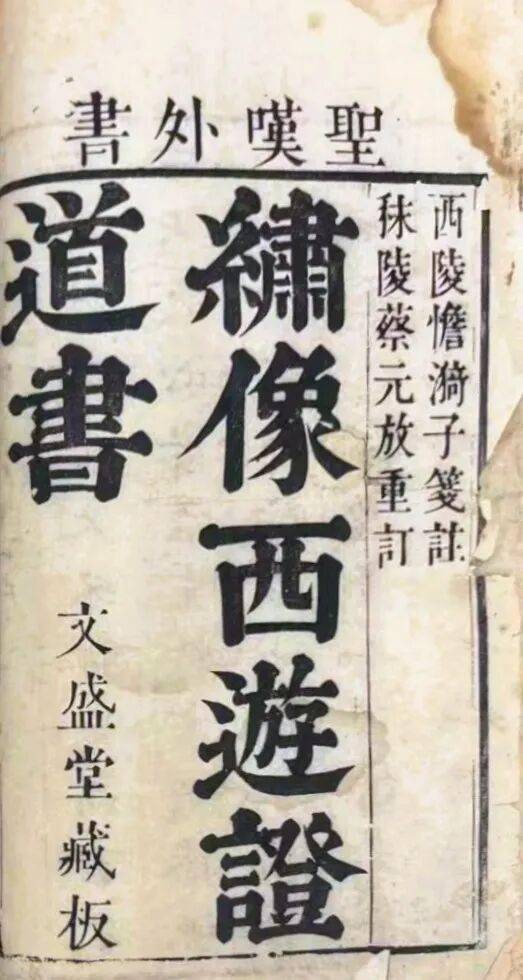 聖嘆外書
西陵憺漪子箋註
秣陵蔡元放重訂
繡像西遊證
道書
文盛堂藏板